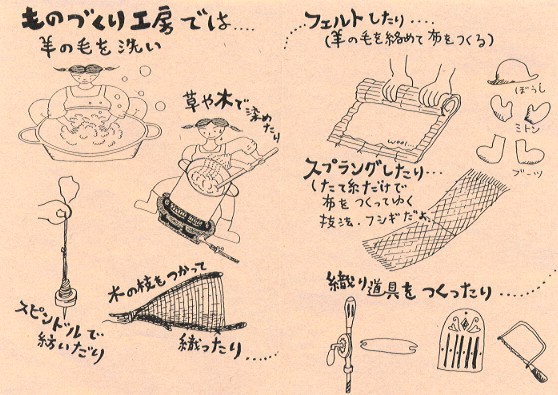 ものづくり工房では....
羊の毛を洗い
草や木で
染めたり
スピンドルで
紡いだり
木の枝もつかって
織ったり....
フェルトしたり...
(羊の毛を絡めて布をつくる)
WOOL
ぼうし
ミトン
ブーツ
スプラングしたり...
(たて糸だけで
布をつくってゆく
技法・フシギだよ)
織り道具をつくったり....